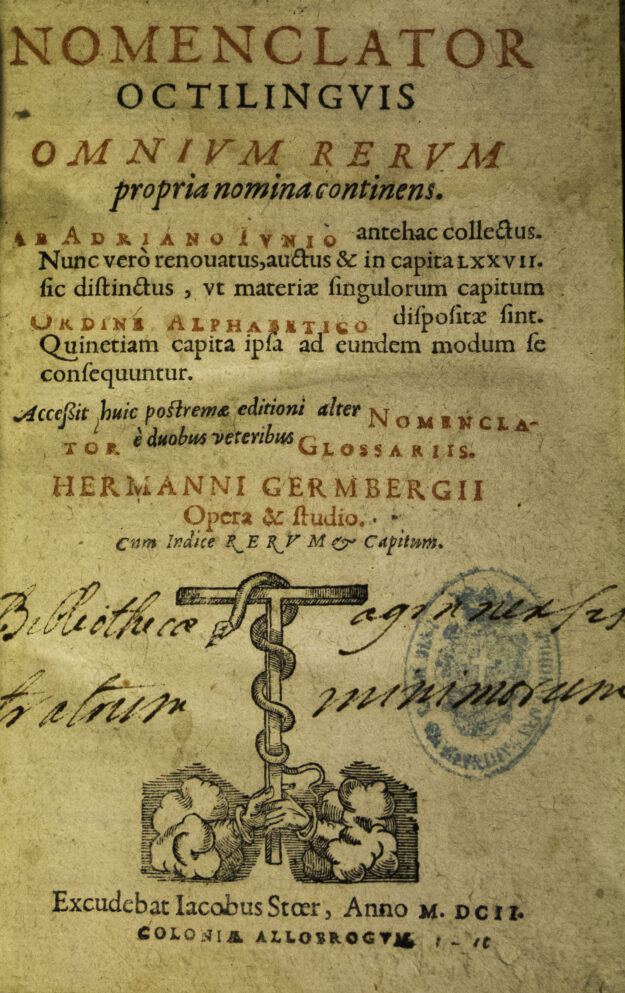 NOMENCLATOR
OCTILINGVIS
OMNIVM RERVM
propria nomina continens.
AB ADRIANO IVNIO antehac collectus.
Nunc verò renouatus, auctus & in capita LXXVII.
ſic diſtinctus , vt materiæ ſingulorum capitum
ORDINE ALPHABETICO diſpoſitæ ſint.
Quinetiam capita ipſa ad eundem modum ſe
conſequuntur.
Acceßit huic poſtremæ editioni alter NOMENCLA-
TOR è duobus veteribus GLOSSARIIS.
HERMANNI GERMBERGII
Opera & ſtudio.
Cum Indice RERVM & Capitum.
Bibliothecæ aginnensis
fratrum minimorum
Excudebat Iacobus Stœr, Anno M. DCII.
COLONIÆ ALLOBROGVM